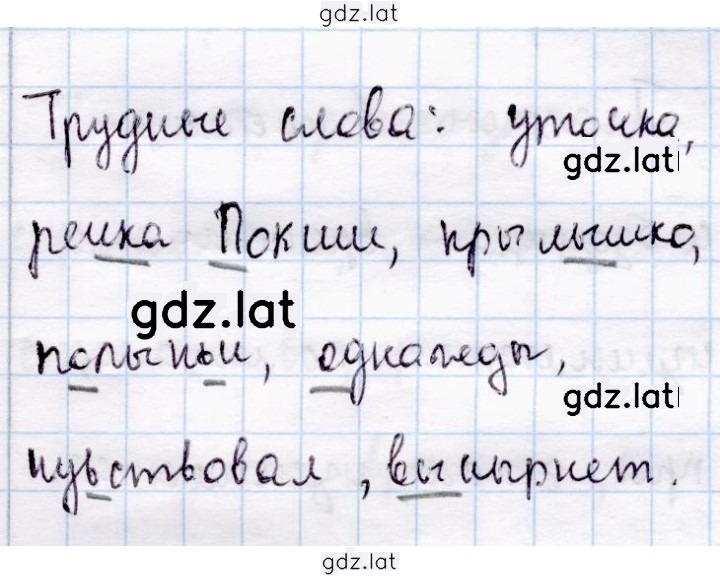 gdz.lat
Трудные слова: уточка,
gdz.lat
речка Покши, крылышко,
gdz.lat
полыньи, однажды,
gdz.lat
чувствовал, вынырнет.
gdz.lat